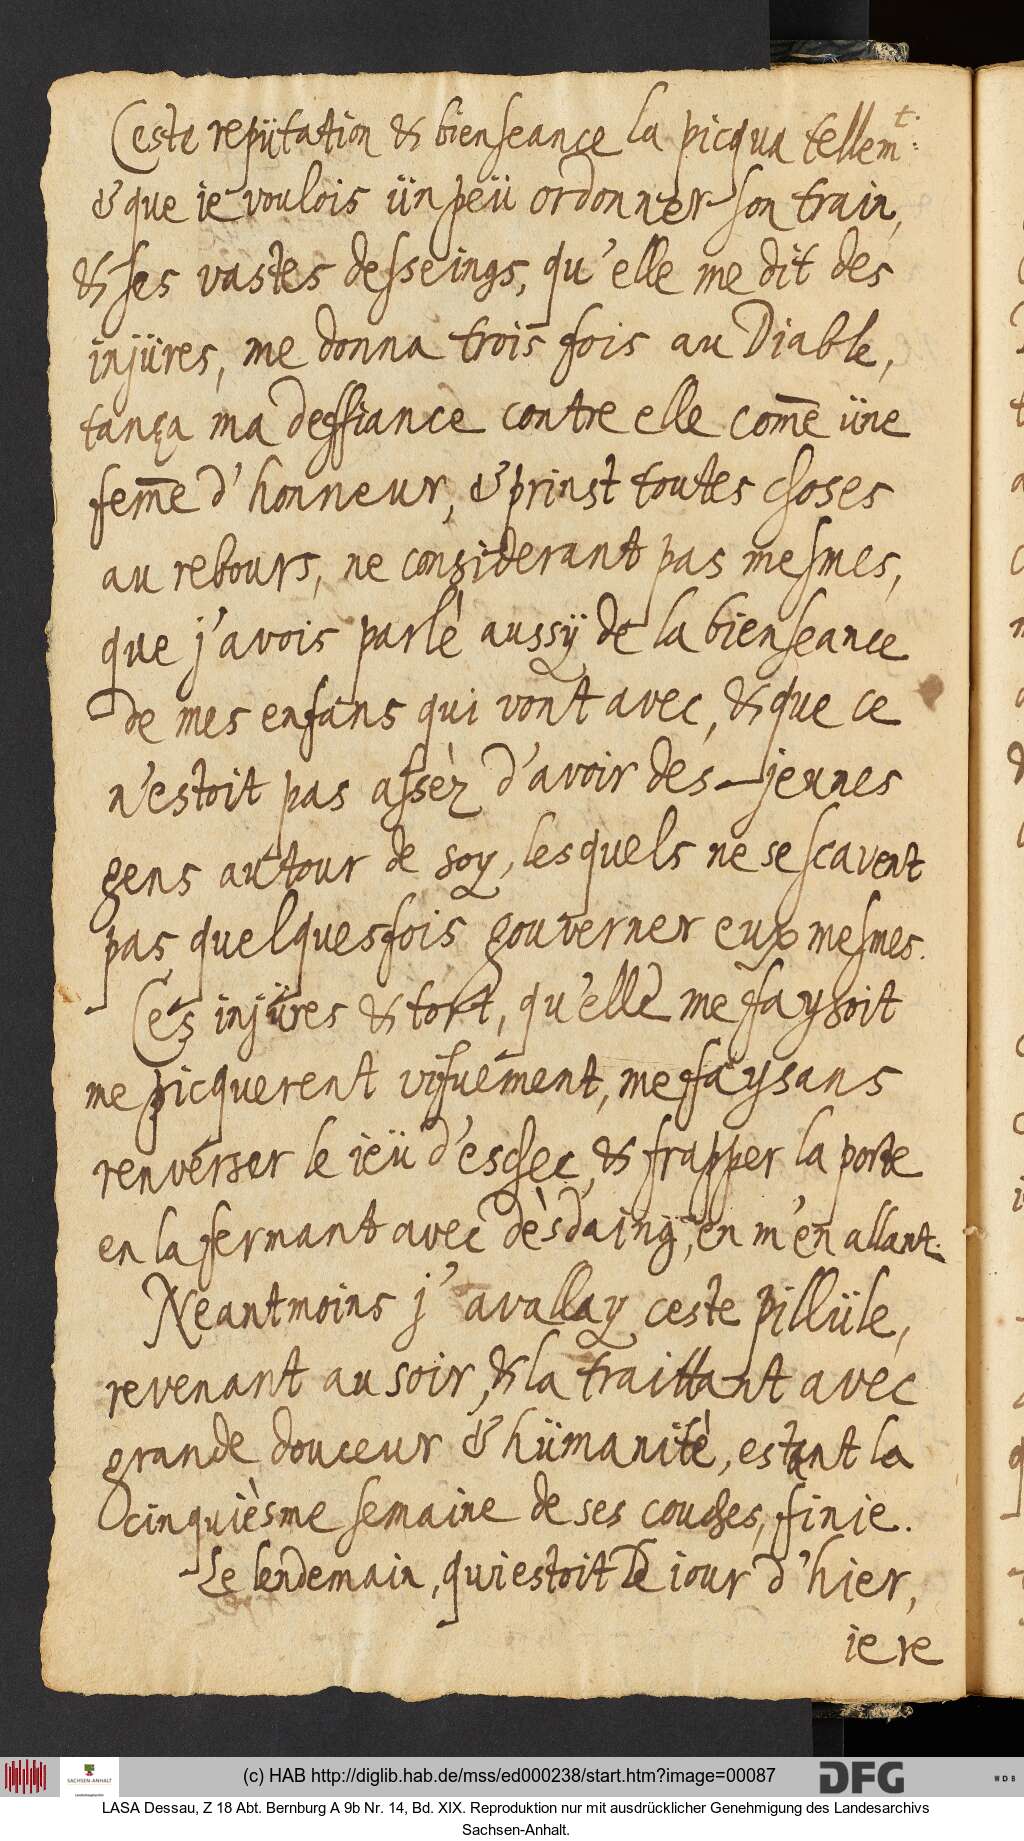 Ceste repütation & bienseance la picqua tellemt:
& que ie voulois ün peü ordonner son train,
& ses vastes desseings, qu'elle me dit des
injüres, me donna trois fois au Diable,
tança ma deffiance contre elle com̄e üne
fem̄e d'honneur, & prinst toutes choses
au rebours, ne considerant pas mesmes,
que j'avois parlè aussÿ de la bienseance
de mes enfans qui vont avec, & que ce
n'estoit pas assèz d'avoir des jeunes
gens autour de soy, lesquels ne se scavent
pas quelquesfois gouverner eux mesmes.
Ces injüres & tort, qu'elle me faysoit
me picquerent vifvement, me faysans
renverser le jeü d'eschec, & frapper la porte
en la fermant avec dèsdaing, en m'en allant.
Neantmoins j'avallay ceste pillüle,
revenant au soir, & la traittant avec
grande douceur & hümanitè, estant la
cinquièsme semaine de ses couches, finie.
Le lendemain, qui estoit le iour d'hier,
ie re
(c) HAB http://diglib.hab.de/mss/ed000238/start.htm?image=00087
SACHSEN-ANHALT
DFG
WDB
LASA Dessau, Z 18 Abt. Bernburg A 9b Nr. 14, Bd. XIX. Reproduktion nur mit ausdrücklicher Genehmigung des Landesarchivs
Sachsen-Anhalt.